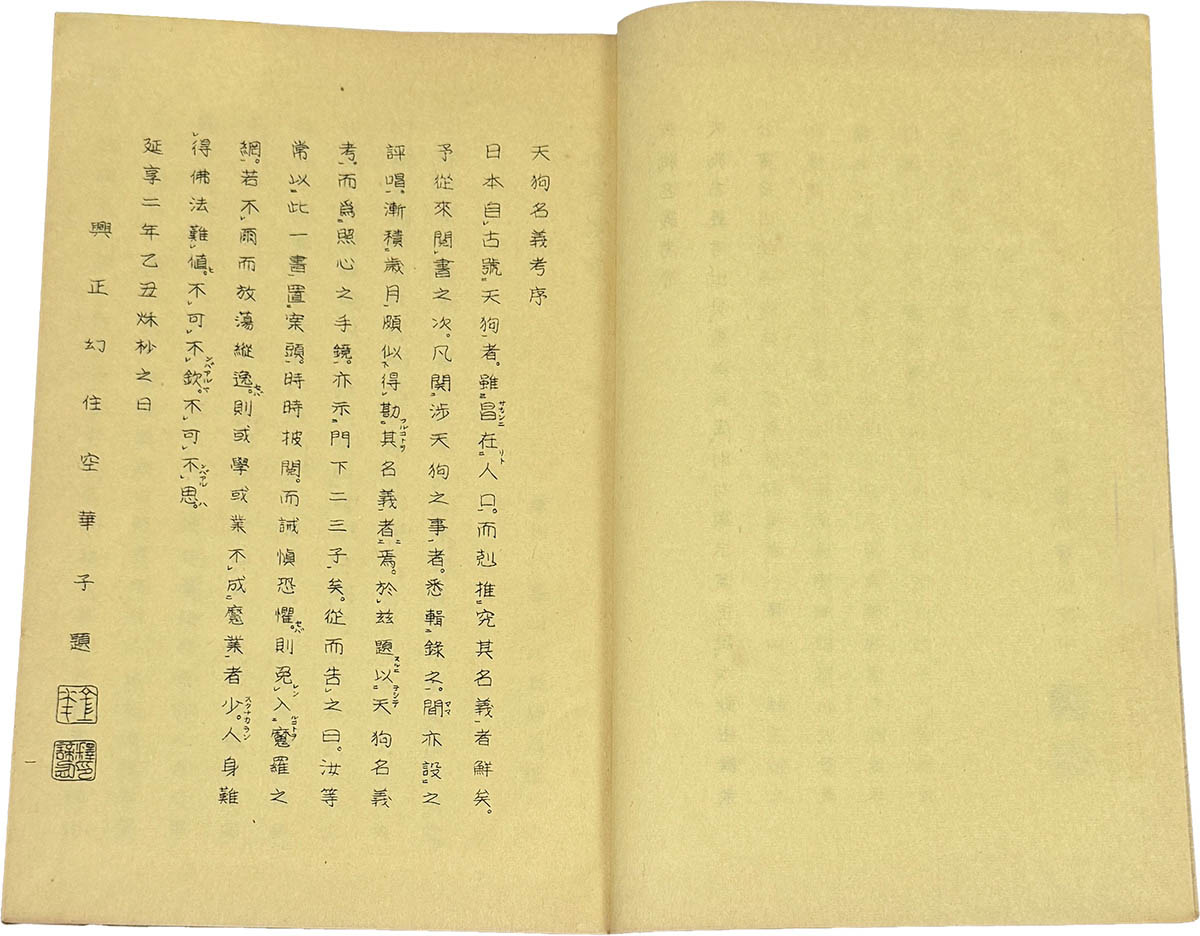 天狗名義考序
日本自古號天狗者。雖昌在人口。而剋推究其名義者鮮矣。
予從來閲書之次。凡関涉天狗之事者。悉輯錄之。間亦設之
評唱。漸積歲月頗似得勘其名義者焉。於玆題以天狗名義
考。而爲照心之手鏡。亦示門下二三子矣。從而告之曰。汝等
常以此一書置案頭。時時披閲。而誡愼恐懼。則免入魔羅之
網。若不爾而放蕩縱逸。則或學或業不成魔業者少。人身難
得佛法難値。不可不欽。不可不思。
延享二年乙丑秌杪之日
興正幻住空華子題
一